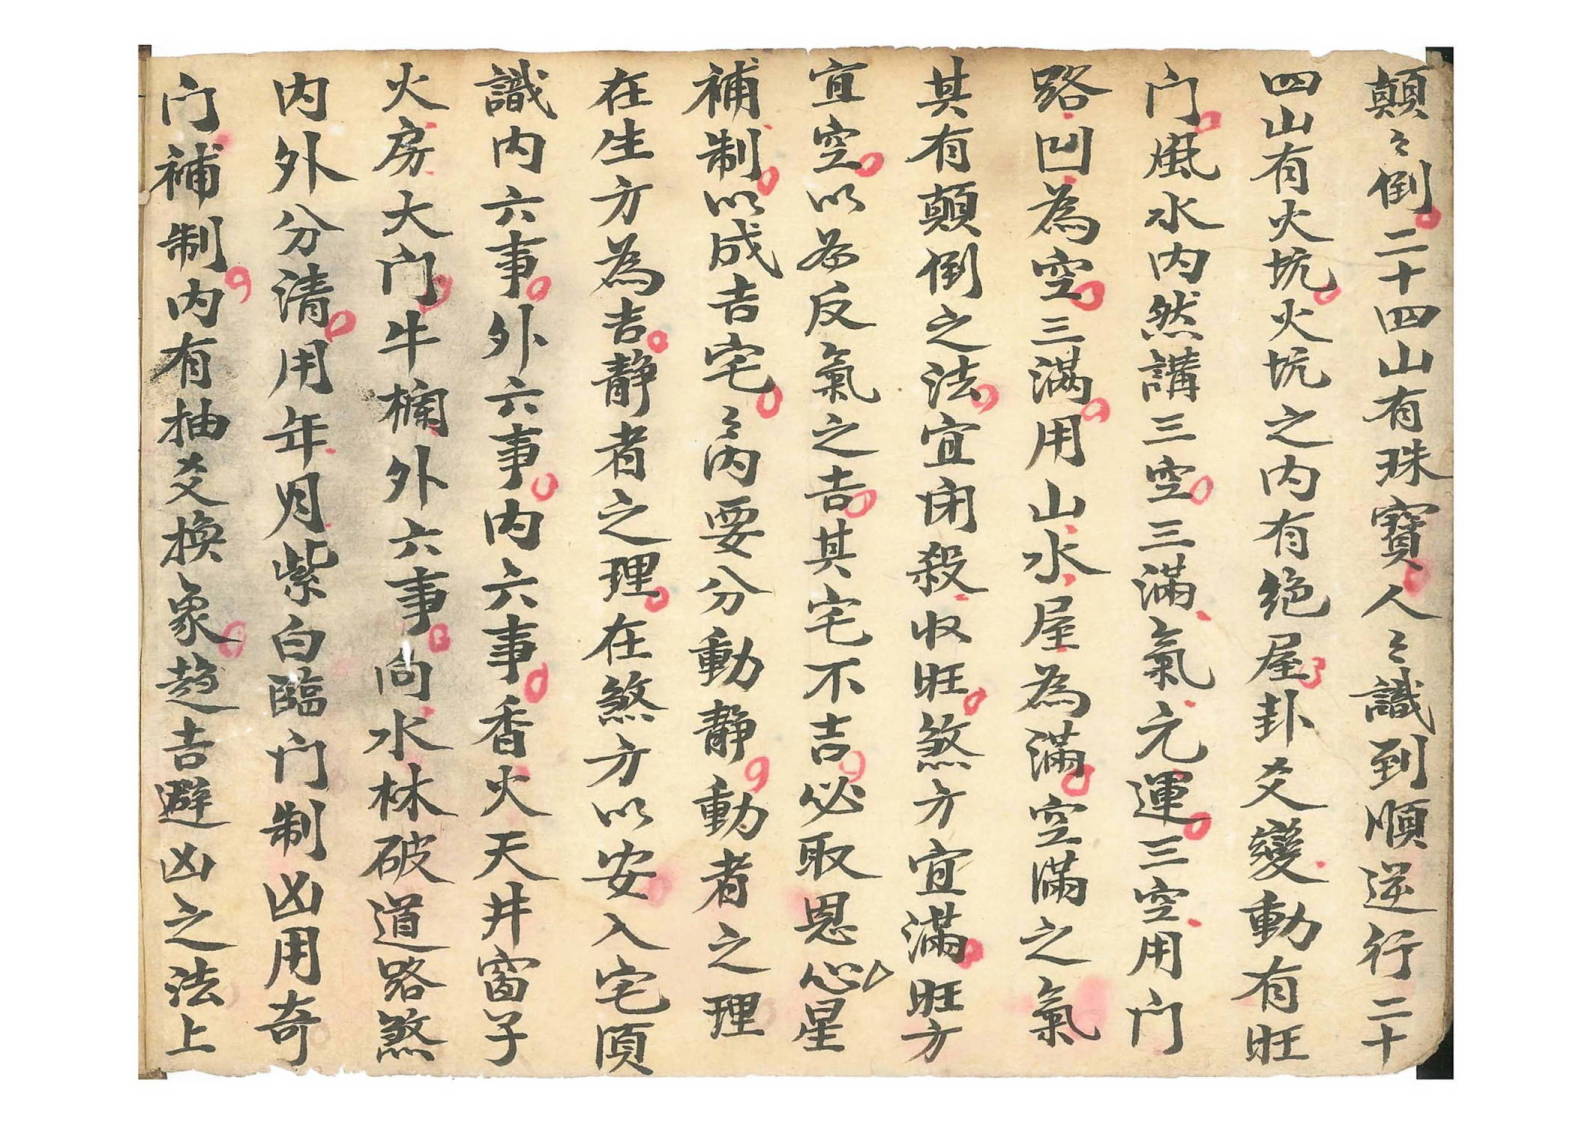 顛〻倒二十四山有珠寶人〻識到順逆行二十
四山有火坑火坑之内有絶屋卦爻變動有旺
门風水内然講三空三滿氣元運三空用门
路凹為空三滿用山水屋為滿空滿之氣
其有顛倒之法宜闭殺收旺煞方宜滿旺方
宜空以為反氣之吉其宅不吉必取恩心星
補制以成吉宅〻内要分動靜動者之理
在生方為吉靜者之理在煞方以安入宅須
識内六事外六事内六事香火天井窗子
火房大门牛欄外六事向水林破道路煞
内外分清用年月紫白臨门制凶用奇
门補制内有抽爻換象趨吉避凶之法上